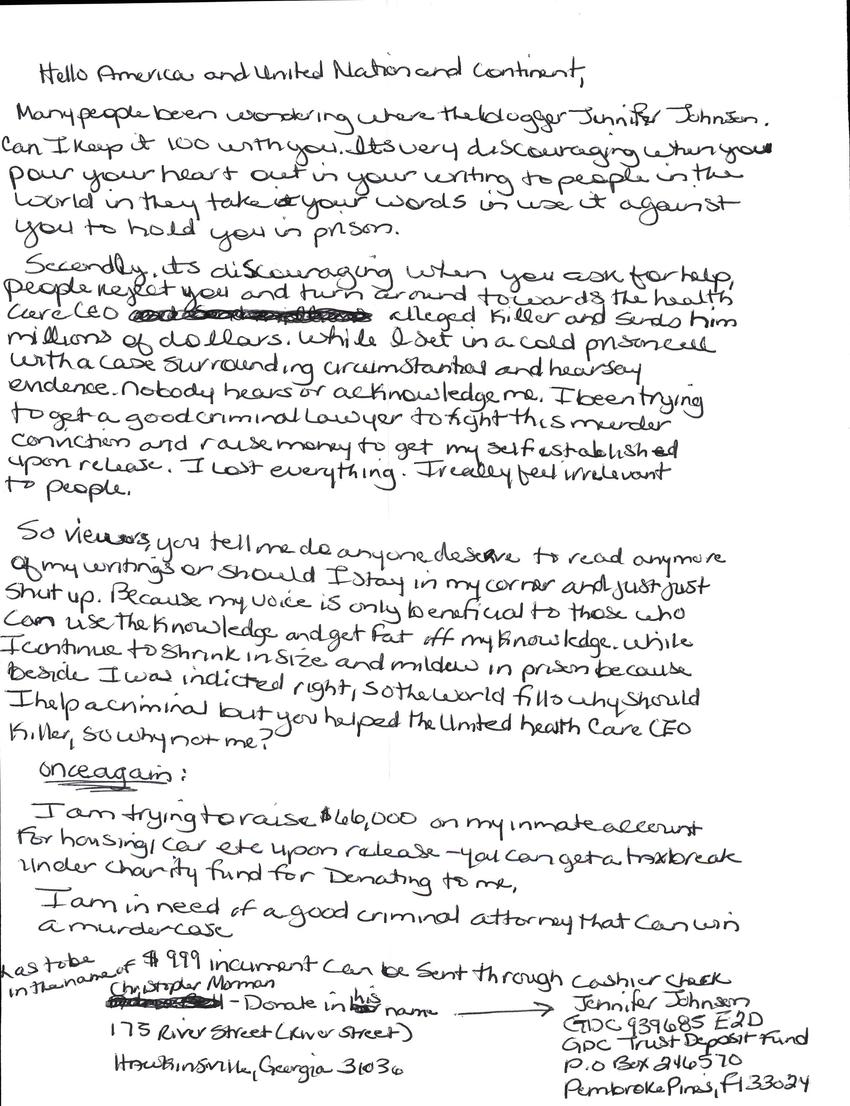 Hello America and United Nation and Continent,
Many people been wondering where the blogger Jennifer Johnson.
Can I keep it 100 with you. Its very discouraging when you
pour your heart out in your writing to people in the
world in they take your words in use it against
you to hold you in prison.
Secondly, its discouraging when you ask for help,
people reject you and turn around towards the health
Care CEO alleged killer and sends him
millions of dollars. While I set in a cold prison cell
with a case surrounding circumstantial and hearsay
evidence. Nobody hears or acknowledge me. I been trying
to get a good criminal lawyer to fight this murder
conviction and raise money to get my self established
upon release. I lost everything. I really feel irrelevant
to people.
So viewers, you tell me do anyone deserve to read anymore
of my writings or should I stay in my corner and just just
shut up. Because my voice is only beneficial to those who
can use the knowledge and get fat off my knowledge. While
I continue to shrink in size and mildew in prison because
beside I was indicted right, so the world fills why should
I help a criminal but you helped the United health Care CEO
killer, so why not me?
once again:
I am trying to raise $66,000 on my inmate account
for housing, car etc upon release - you can get a tax break
under charity fund for Donating to me,
I am in need of a good criminal attorney that can win
a murder case
$999 incument can be sent through cashier check
has to be
in the name of
Christopher Morman
- Donate in his name →
175 River Street (River Street)
Hawkinsville, Georgia 31036
Jennifer Johnson
GDC 939685 E2D
GDC Trust Deposit Fund
P.O Box 246570
Pembroke Pines, Fl 33024